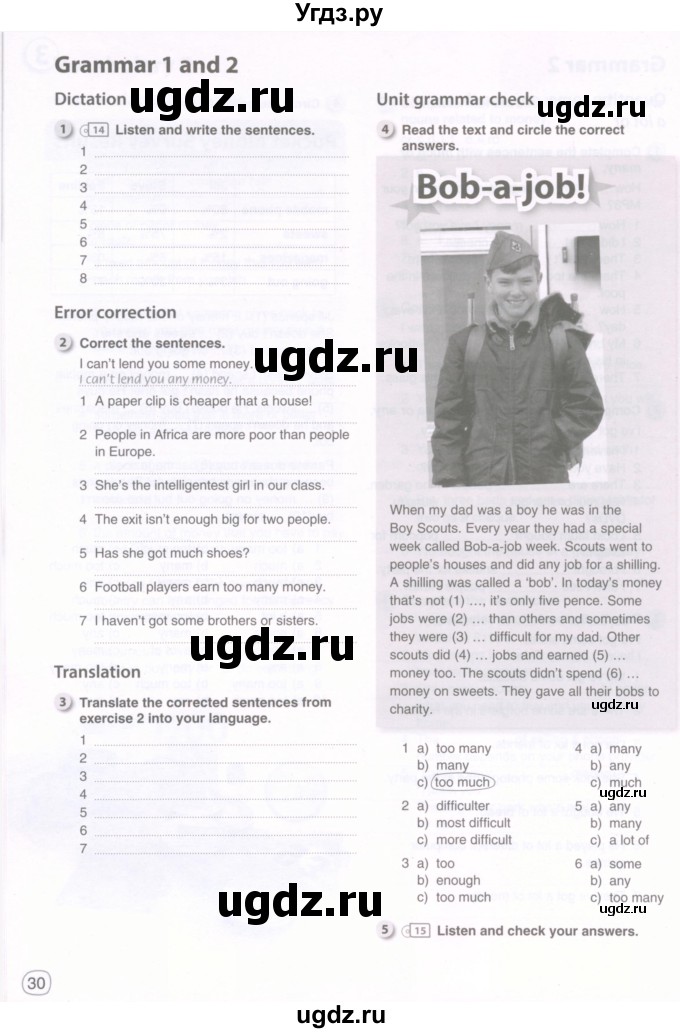 Угдз.ру
Grammar 1 and 2
Dictation
ugdz.ru
1 14 Listen and write the sentences.
1
2
3
4
5
6
7
8
ugdz.ru
Error correction
2 Correct the sentences.
I can't lend you some money.
I can't lend you any money.
ugdz.ru
1 A paper clip is cheaper that a house!
2 People in Africa are more poor than people
in Europe.
3 She's the intelligentest girl in our class.
4 The exit isn't enough big for two people.
5 Has she got much shoes?
6 Football players earn too many money.
7 I haven't got some brothers or sisters.
ugdz.ru
Translation
3 Translate the corrected sentences from
exercise 2 into your language.
1
2
3
4
5
6
7
ugdz.ru
30
Unit grammar check
4 Read the text and circle the correct
answers.
Bob-a-job!
When my dad was a boy he was in the
Boy Scouts. Every year they had a special
week called Bob-a-job week. Scouts went to
people's houses and did any job for a shilling.
A shilling was called a 'bob'. In today's money
that's not (1) …, it's only five pence. Some
jobs were (2) … than others and sometimes
they were (3) … difficult for my dad. Other
scouts did (4) … jobs and earned (5) …
money too. The scouts didn't spend (6) …
money on sweets. They gave all their bobs to
charity.
1 a) too many
b) many
c) too much
2 a) difficulter
b) most difficult
c) more difficult
3 a) too
b) enough
c) too much
4 a) many
b) any
c) much
ugdz.ru
5 a) any
b) many
c) a lot of
6 a) some
b) any
c) too many
ugdz.ru
5 15 Listen and check your answers.
ugdz.ru